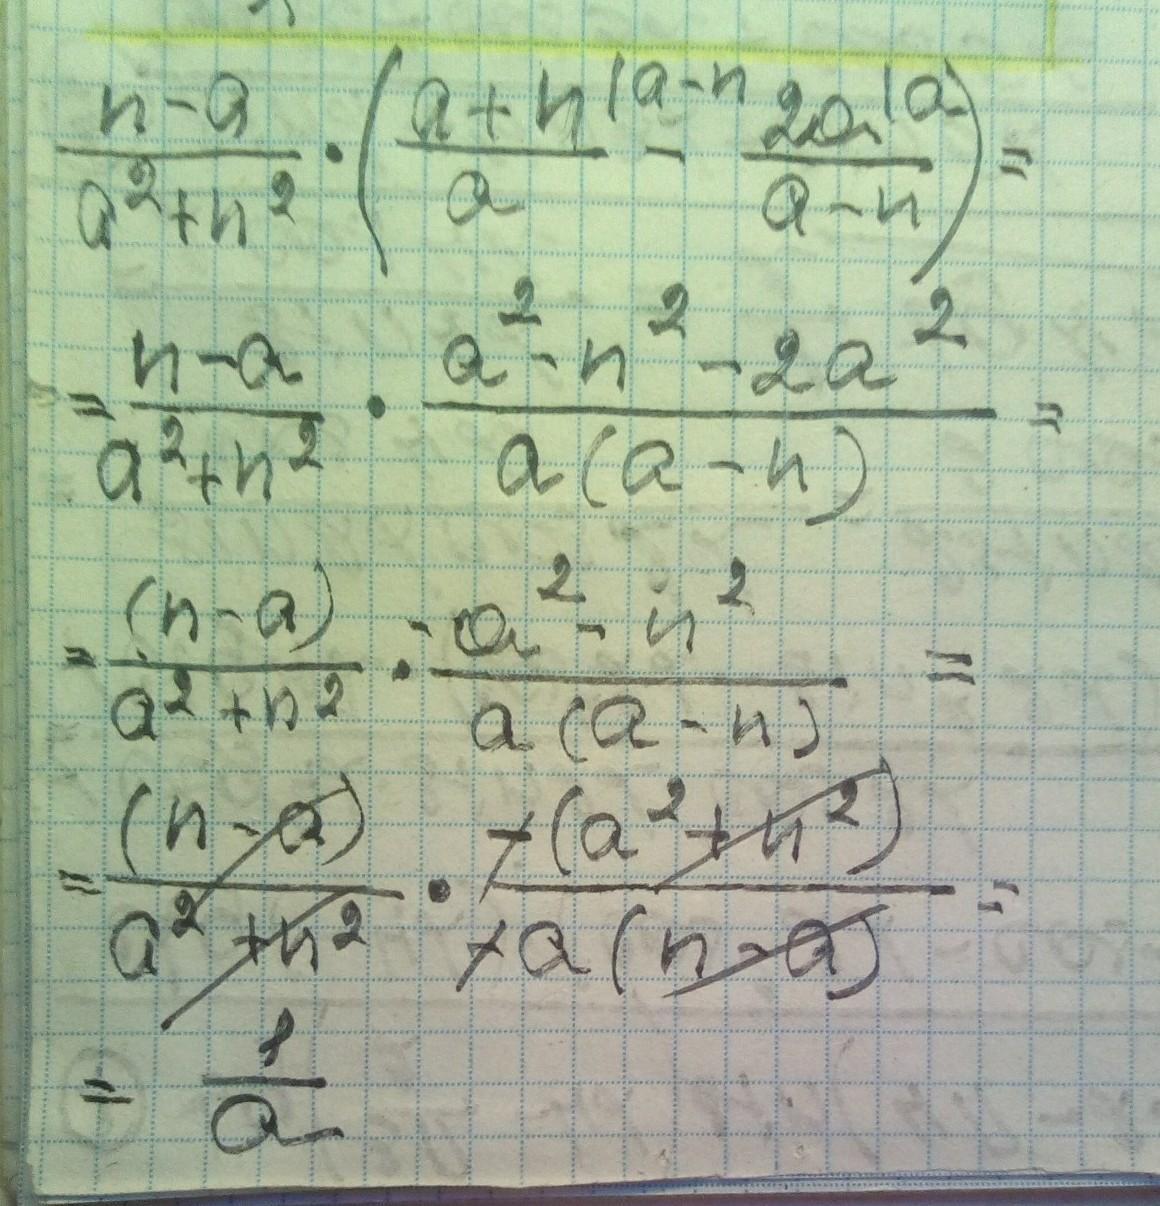 n-a/a²+n² · (a+n/a |a-n - 2a/a-n |a) =
= n-a/a²+n² · a²-n²-2a²/a(a-n) =
= (n-a)/a²+n² · -a²-n²/a(a-n) =
= (n-a)/a²+n² · -(a²+n²)/-a(n-a) =
= 1/a